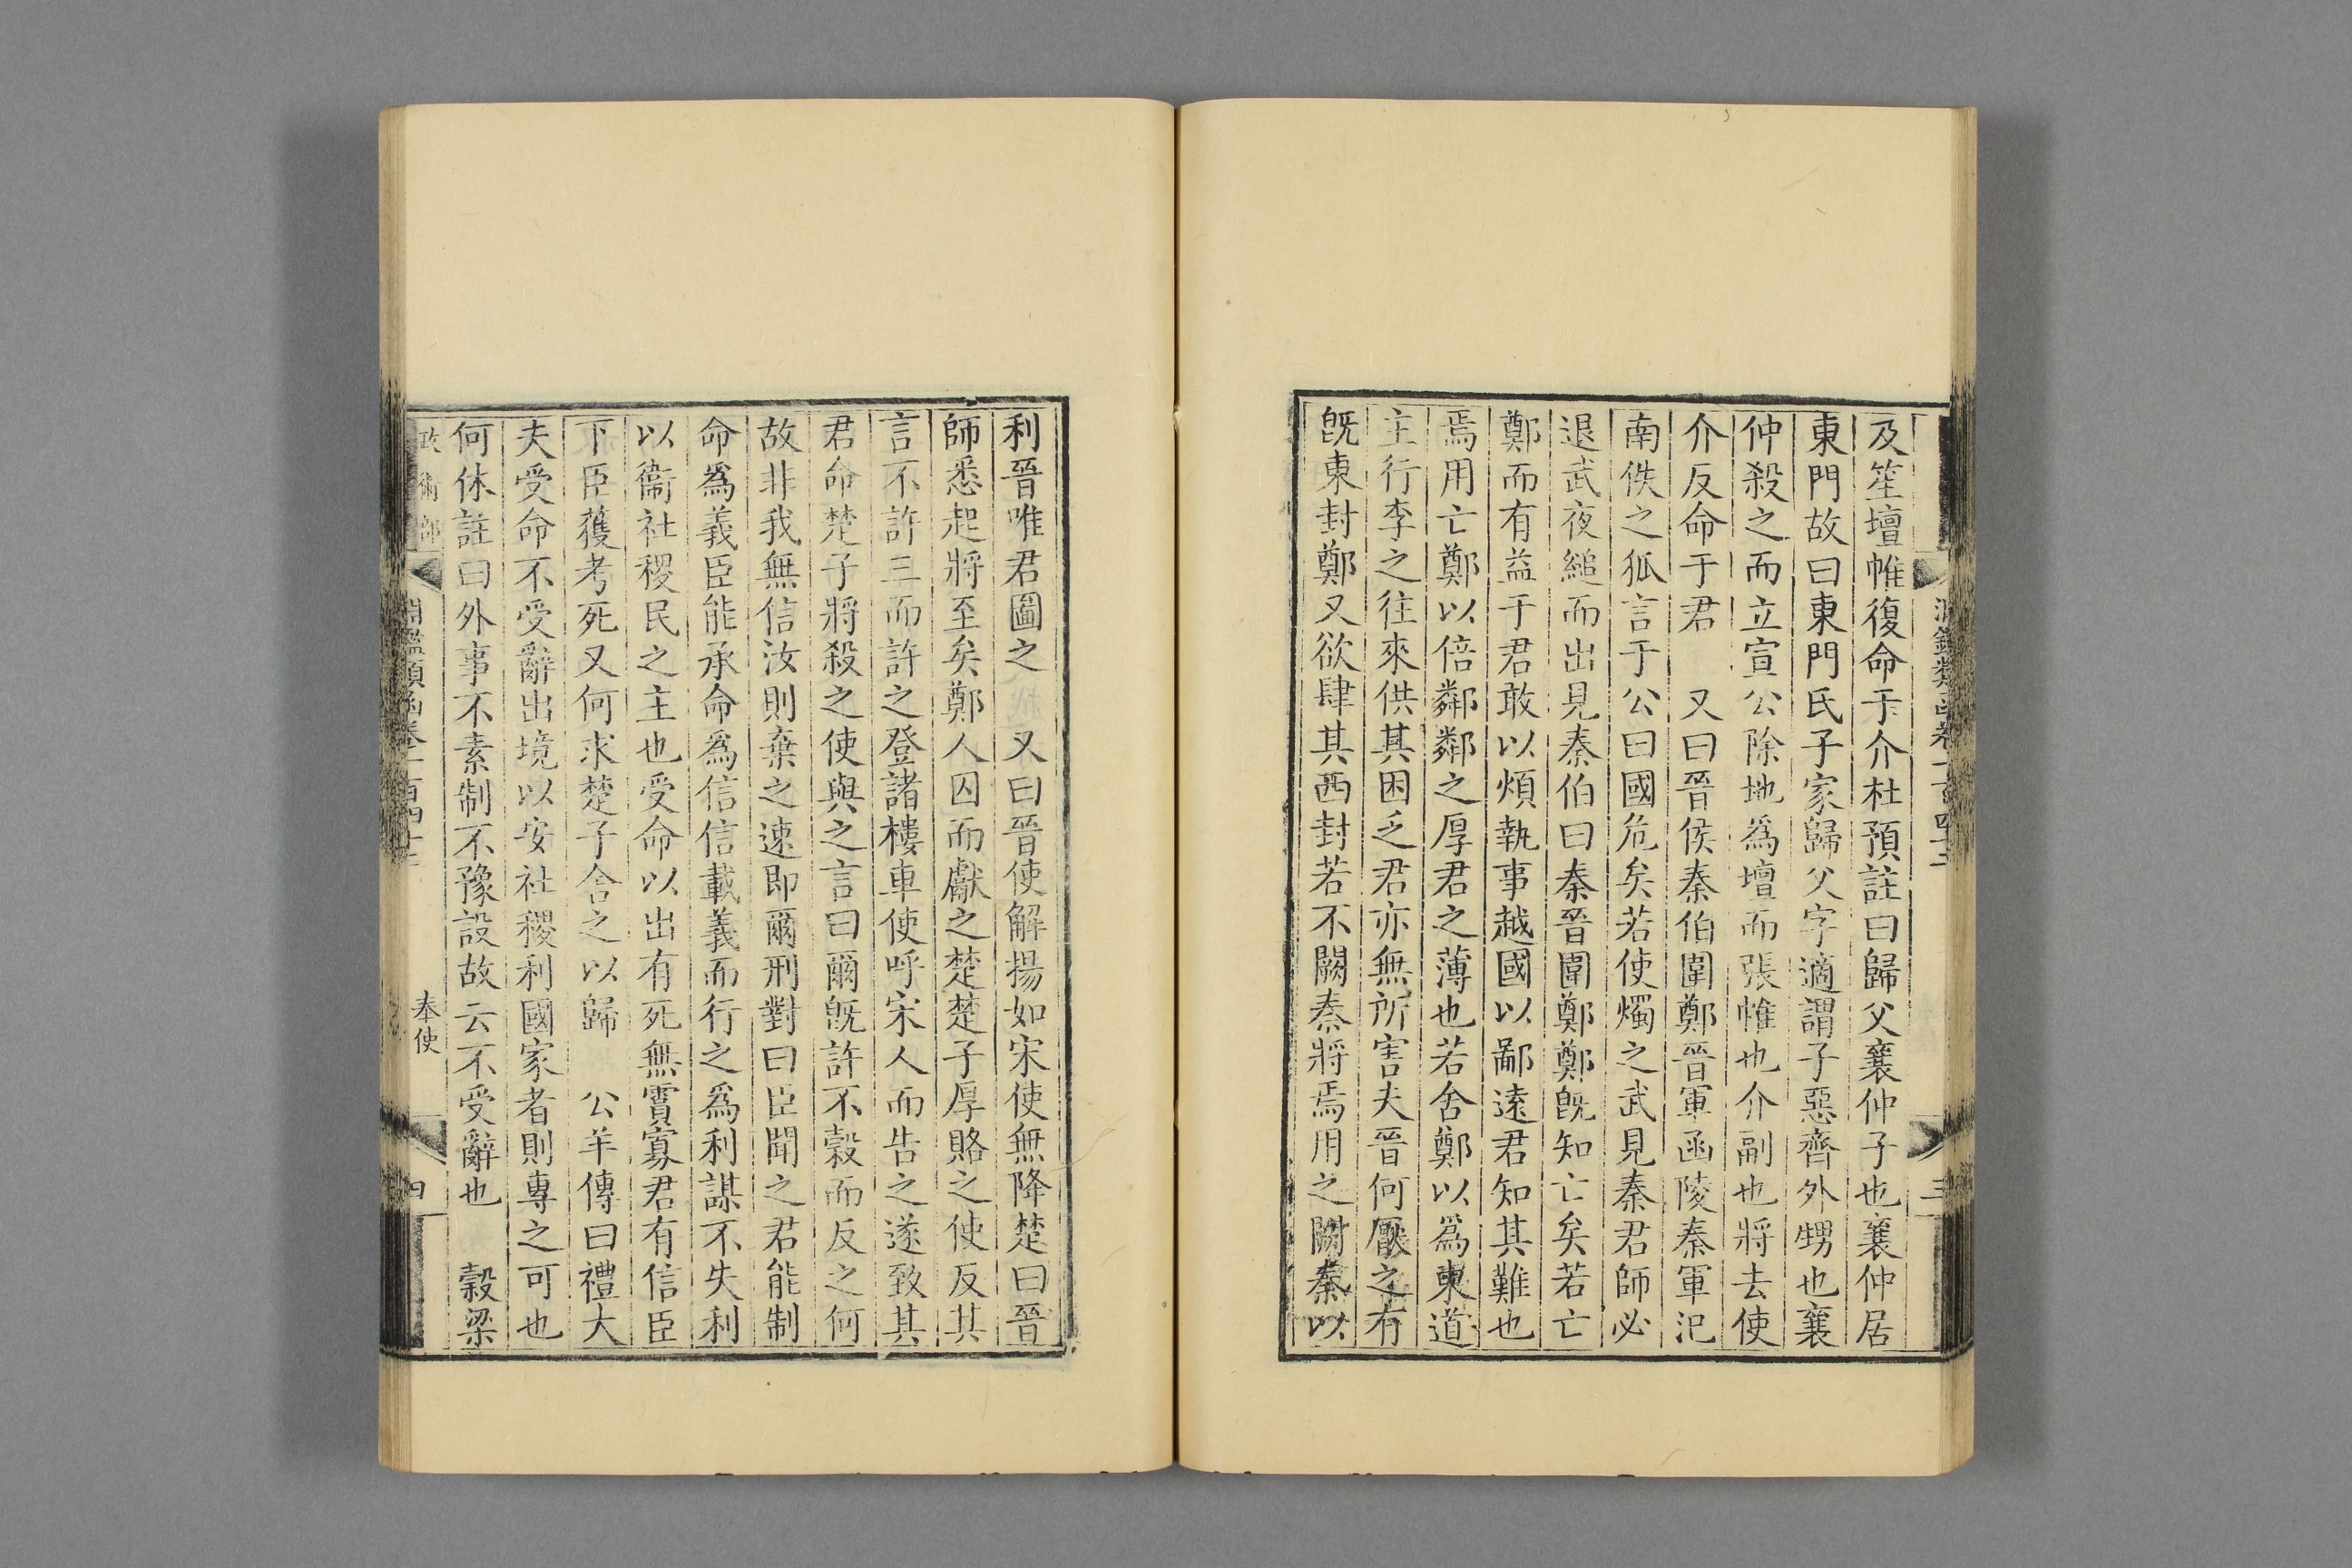 及笙壇帷復命于介杜預註曰歸父襄仲子也襄仲居
東門故曰東門氏子家歸父字適謂子惡齊外甥也襄
仲殺之而立宣公除地為壇而張帷也介副也將去使
介反命于君　又曰晉侯秦伯圍鄭晉軍函陵秦軍氾
南佚之狐言于公曰國危矣若使燭之武見秦君師必
退武夜縋而出見秦伯曰秦晉圍鄭鄭旣知亡矣若亡
鄭而有益于君敢以煩執事越國以鄙遠君知其難也
焉用亡鄭以倍鄰鄰之厚君之薄也若舍鄭以爲東道
主行李之往來供其困乏君亦無所害夫晉何厭之有
旣東封鄭又欲肆其西封若不闕秦將焉用之闕秦以
利晉唯君圖之　又曰晉使解揚如宋使無降楚曰晉
師悉起將至矣鄭人囚而獻之楚楚子厚賂之使反其
言不許三而許之登諸樓車使呼宋人而告之遂致其
君命楚子將殺之使與之言曰爾旣許不穀而反之何
故非我無信汝則棄之速即爾刑對曰臣聞之君能制
命爲義臣能承命爲信信載義而行之爲利謀不失利
以衞社稷民之主也受命以出有死無霣寡君有信臣
下臣獲考死又何求楚子舍之以歸　公羊傳曰禮大
夫受命不受辭出境以安社稷利國家者則專之可也
何休註曰外事不素制不豫設故云不受辭也　穀梁
政術部　淵鑑類函卷一百四十三　奉使　四